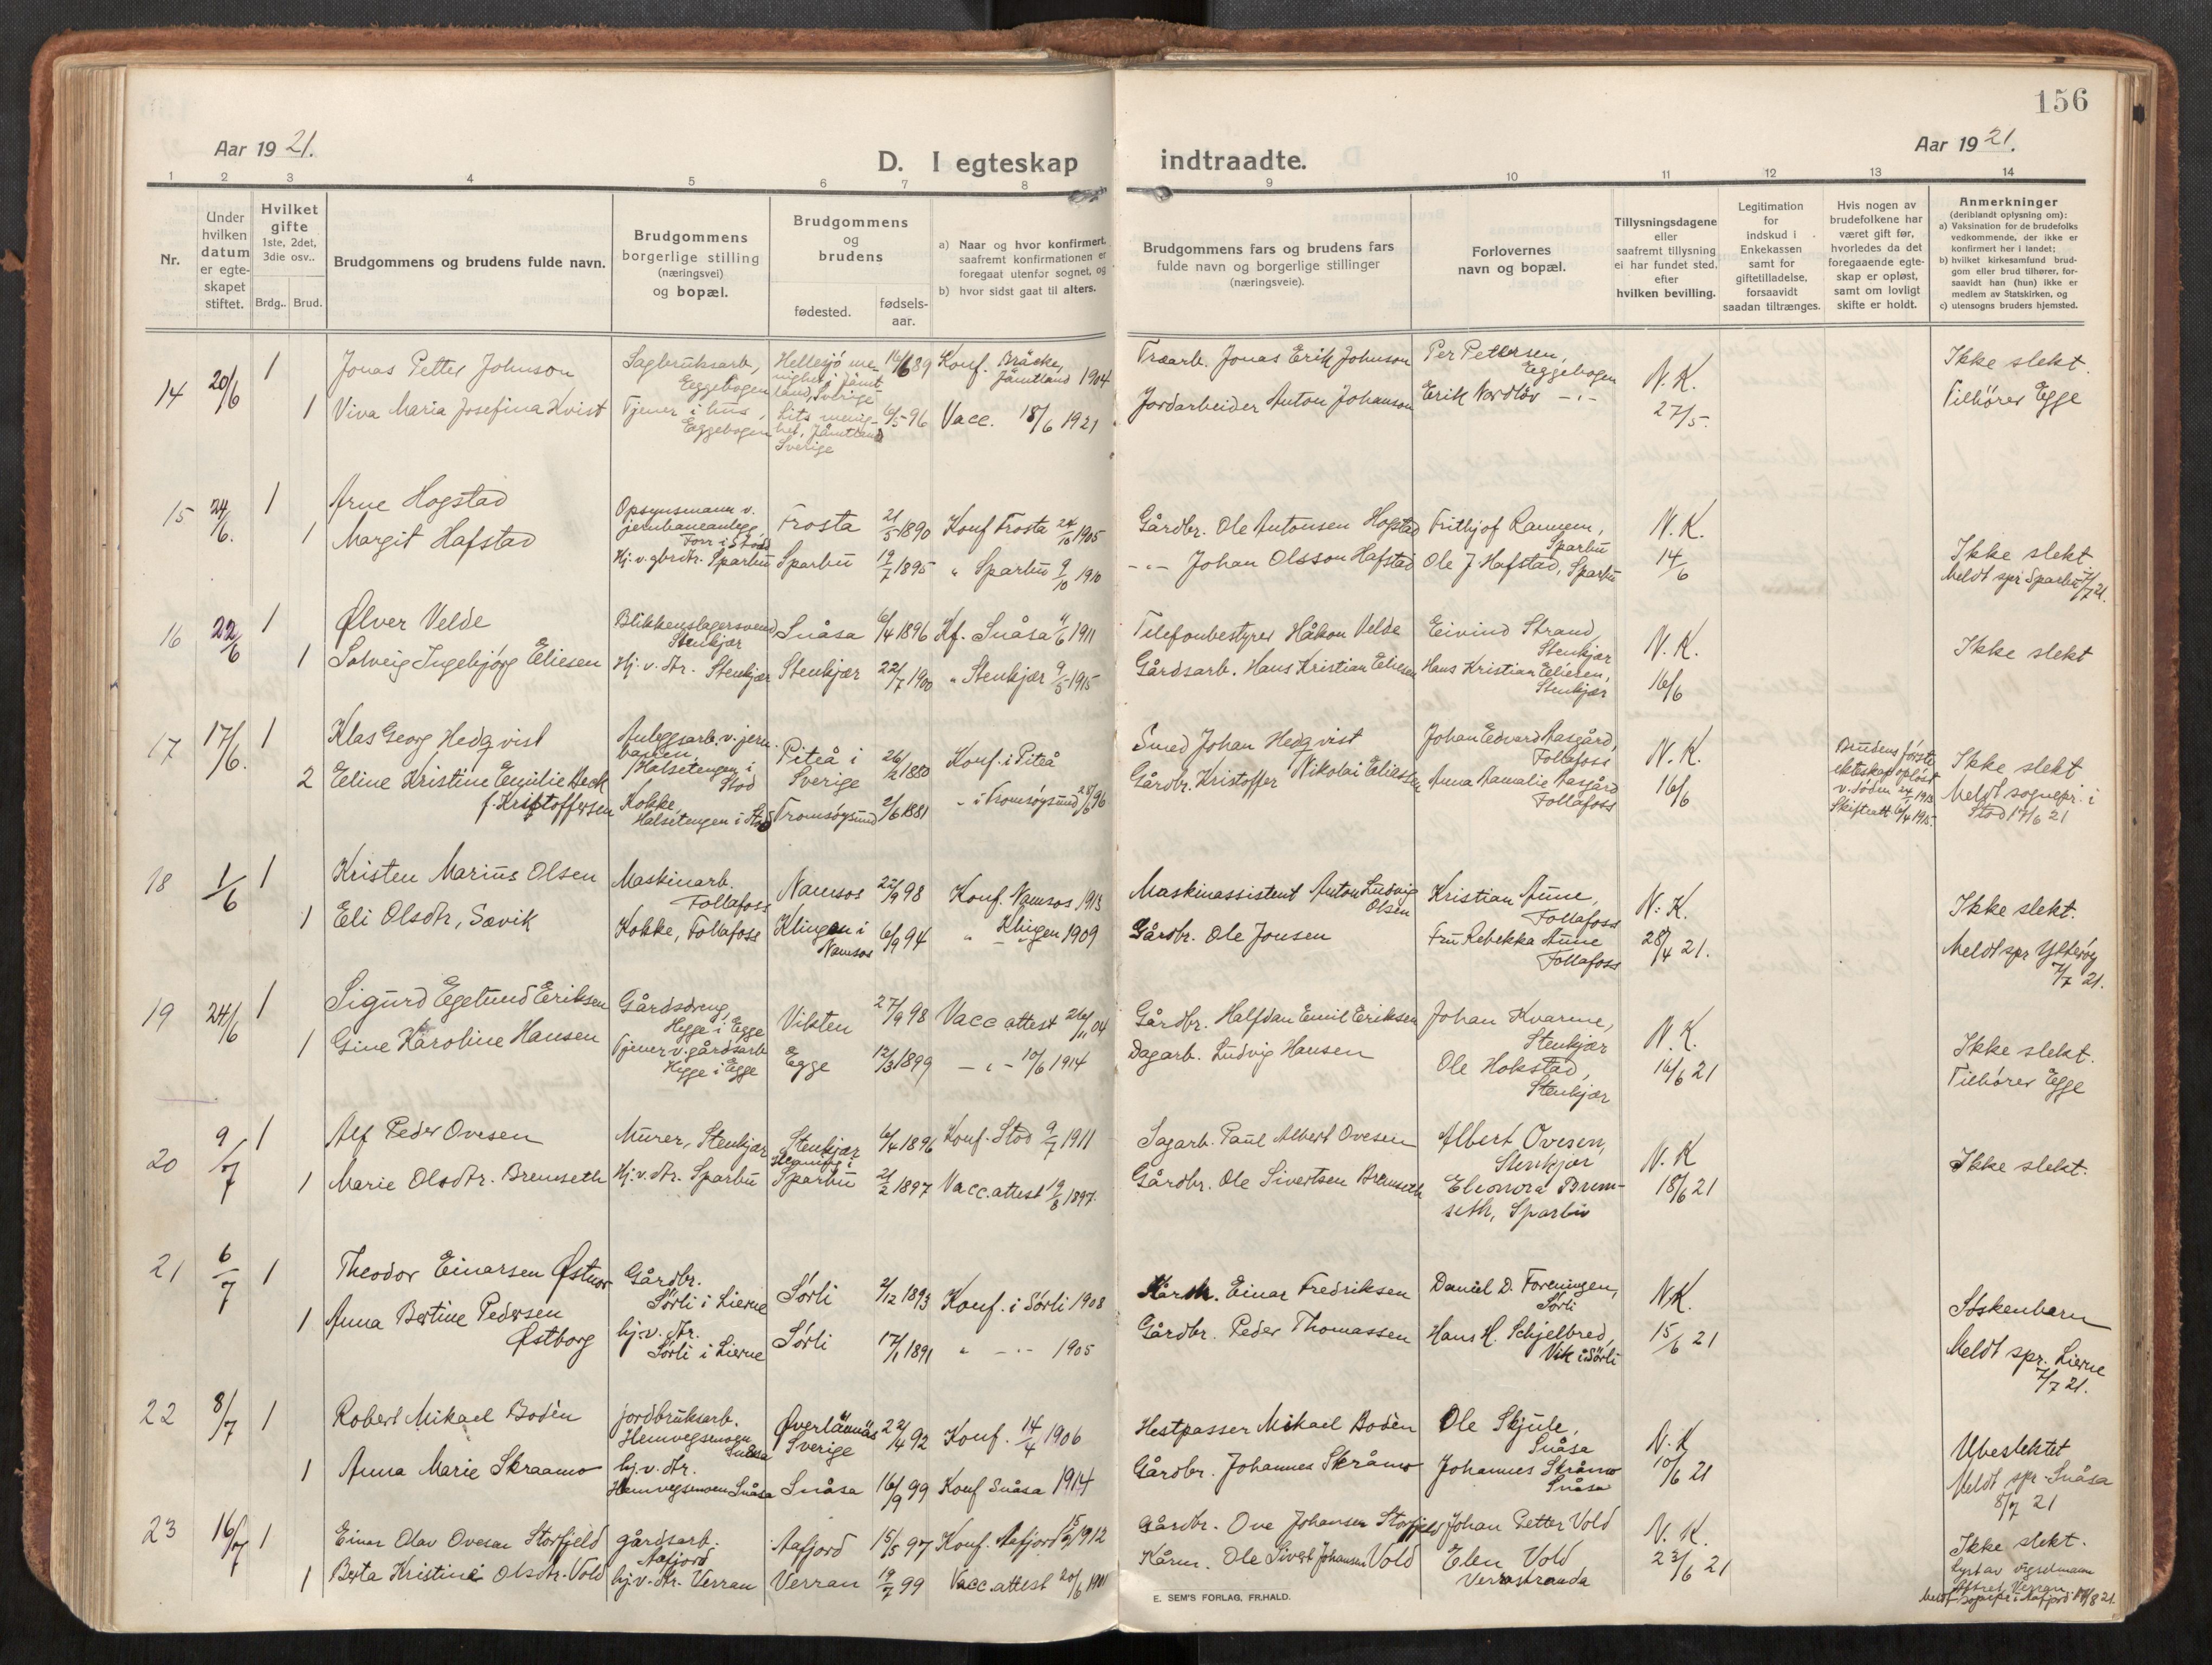 156
Aar 1921.
D. I egteskap indtraadte.
Aar 1921.
1 2 3 4 5 6 7 8 9 10 11 12 13 14
Nr.
Under hvilken datum er egteskapet stiftet.
Hvilket gifte
1ste, 2det, 3die osv..
Brdg.. Brud.
Brudgommens og brudens fulde navn.
Brudgommens borgerlige stilling (næringsvei) og bopæl.
Brudgommens og brudens
fødested.
fødselsaar.
a) Naar og hvor konfirmert, saafremt konfirmationen er foregaat utenfor sognet, og
b) hvor sidst gaat til alters.
Brudgommens fars og brudens fars fulde navn og borgerlige stillinger (næringsveie).
Forlovernes navn og bopæl.
Tillysningsdagene eller saafremt tillysning ei har fundet sted, efter hvilken bevilling.
Legitimation for indskud i Enkekassen samt for giftetilladelse, forsaavidt saadan tiltrænges.
Hvis nogen av brudefolkene har været gift før, hvorledes da det foregaaende egteskap er opløst, samt om lovligt skifte er holdt.
Anmerkninger
(deriblandt oplysning om):
a) Vaksination for de brudefolks vedkommende, der ikke er konfirmert her i landet;
b) hvilket kirkesamfund brudgom eller brud tilhører, forsaavidt han (hun) ikke er medlem av Statskirken, og
c) utensogns bruders hjemsted.
14 20/6 1 Jonas Petter Johnson Sagbruksarb, Eggebogen Hellesjö menighet, Jämtland, Sverige 16/6 89 Konf. Bräcke, Jämtland 1904 Træarb. Jonas Erik Johnson Per Pettersen, Eggebogen N.K. 27/5. Ikke slekt. Tilhører Egge
1 Viva Maria Josefina Kvist Tjener i hus, Eggebogen Lits menighet, Jämtland Sverige 6/5-96 Vacc. 18/6 1921 Jordarbeider Anton Johanson Erik Nordlöv -"-
15 24/6. 1 Arne Hogstad Opsynsmann v. jernbaneanlegg Forr i Stod Frosta 21/5 1890 Konf Frosta 24/10 1905 Gårdbr. Ole Antonsen Hogstad Frithjof Rannem, Sparbu N.K. 14/6
1 Margit Hafstad Hj. v. gbrdtr. Sparbu Sparbu 12/7 1895 " Sparbu 9/10 1910 -"- Johan Olsson Hafstad Ole J. Hafstad, Sparbu Ikke slekt. Meldt spr Sparbu 7/7 21.
16 22/6 1 Ølver Velde Blikkenslagersvend, Stenkjær Snåsa 6/4 1896 Kf. Snåsa 4/6 1911 Telefonbestyrer Håkon Velde Eivind Strand, Stenkjær N.K. 16/6 Ikke slekt
1 Solveig Ingebjørg Eliesen Hj. v. str. Stenkjær Stenkjær 22/7 1900 " Stenkjær 9/5 1915 Gårdsarb. Hans Kristian Eliesen Hans Kristian Eliesen, Stenkjær
17 17/6. 1 Klas Georg Hedqvist Anleggsarb. v. jernbanen, Halsetengen i Stod Piteå i Sverige 26/2 1880 Konf. i Piteå Smed Johan Hedqvist Johan Edvard Aasgård, Follafoss N.K. 16/6 Brudens første ekteskap opløst v. døden 24/1 1913 Skifteatt. 6/4 1915. Ikke slekt Meldt sognepr. i Stod 17/6 21
2 Eline Kristine Emilie Heck f. Kristoffersen Kokke Halsetengen i Stod Tromsøysund 2/6 1881 -" i Tromsøysund 28/6 96 Gårdbr. Kristoffer Nikolai Eliessen Anna Aamalie Aasgård Follafoss
18 1/6 1 Kristen Marius Olsen Maskinarb. Follafoss Namsos 22/9 98 Konf. Namsos 1913 Maskinassistent Anton Ludvig Olsen Kristian Aune, Follafoss N.K. 28/4 21. Ikke slekt. Meldt spr Ytterøy 7/7 21.
1 Eli Olsdtr, Sævik Kokke, Follafoss Klingen i Namsos 6/9 94 " Klingen 1909 Gårdbr. Ole Jonsen Fru Rebekka Aune Follafoss
19 24/6 1 Sigurd Egelund Eriksen Gårdsdreng, Hegge i Egge Viksten 27/9 98 Vacc attest 26/11 04 Gårdbr. Halfdan Emil Eriksen Johan Kvarme, Stenkjær N.K. 16/6 21 Ikke slekt. Tilhører Egge
1 Gine Karoline Hansen Tjener v. gårdsarb Hegge i Egge Egge 12/3 1899 -"- 10/6 1914 Dagarb. Ludvig Hansen Ole Hokstad, Stenkjær
20 9/7 1 Alf Peder Ovesen Murer, Stenkjær Stenkjær 6/4 1896 Konf. Stod 9/7 1911 Sagarb. Paul Albert Ovesen Albert Ovesen, Stenkjær N.K 18/6 21 Ikke slekt.
1 Marie Olsdtr. Bremseth Hj. v. str. Sparbu Sparbu 21/2 1897 Vacc. attest 19/8 1897. Gårdbr. Ole Sivertsen Bremseth Eleonora Bremseth, Sparbu
21 6/7 1 Theodor Einarsen Østnor Gårdbr. Sørli i Lierne Sørli 2/12 1893 Konf. i Sørli 1908 Einar Fredriksen Daniel D. Foreningen, Sørli N.K. 15/6 21 Søskenbarn Meldt spr. Lierne 7/7 21.
1 Anna Bertine Pedersen Østborg hj. v. str. Sørli i Lierne Sørli 17/1 1891 " -"- 1905 Gårdbr. Peder Thomassen Hans H. Schjelbred, Vik i Sørli
22 8/7 1 Robert Mikael Bodèn jordbruksarb. Hemvegsmoen Snåsa Överlännäs Sverige 22/4 92 Konf. 14/4 1906 Hestpasser Mikael Bodèn Ole Skjule, Snåsa N.K 10/6 21 Ubeslektet Meldt spr. Snåsa 8/7 21
1 Anna Marie Skraamo hj. v. str. Hemvegsmoen Snåsa Snåsa 16/9 99 Konf Snåsa 1914 Gårdbr. Johannes Skråmo Johannes Skråmo Snåsa
23 16/7 1 Einar Olav Ovesen Storfjeld gårdsarb. Aafjord Aafjord 15/5 97 Konf. Aafjord 15/9 1912 Gårdbr. Ove Johansen Storfjeld Johan Petter Vold N.K. 23/6 21 Ikke slekt. Lyst av vigselmann Verran. Meldt sognepr. i Aafjord 17/8 21.
1 Berta Kristine Olsdtr. Vold hj. v. str. Verran Verran 19/7 99 Vacc. attest 20/6 1901 Kårm. Ole Sivert Johansen Vold Elen Vold Verrastranda
E. SEM'S FORLAG, FR.HALD.